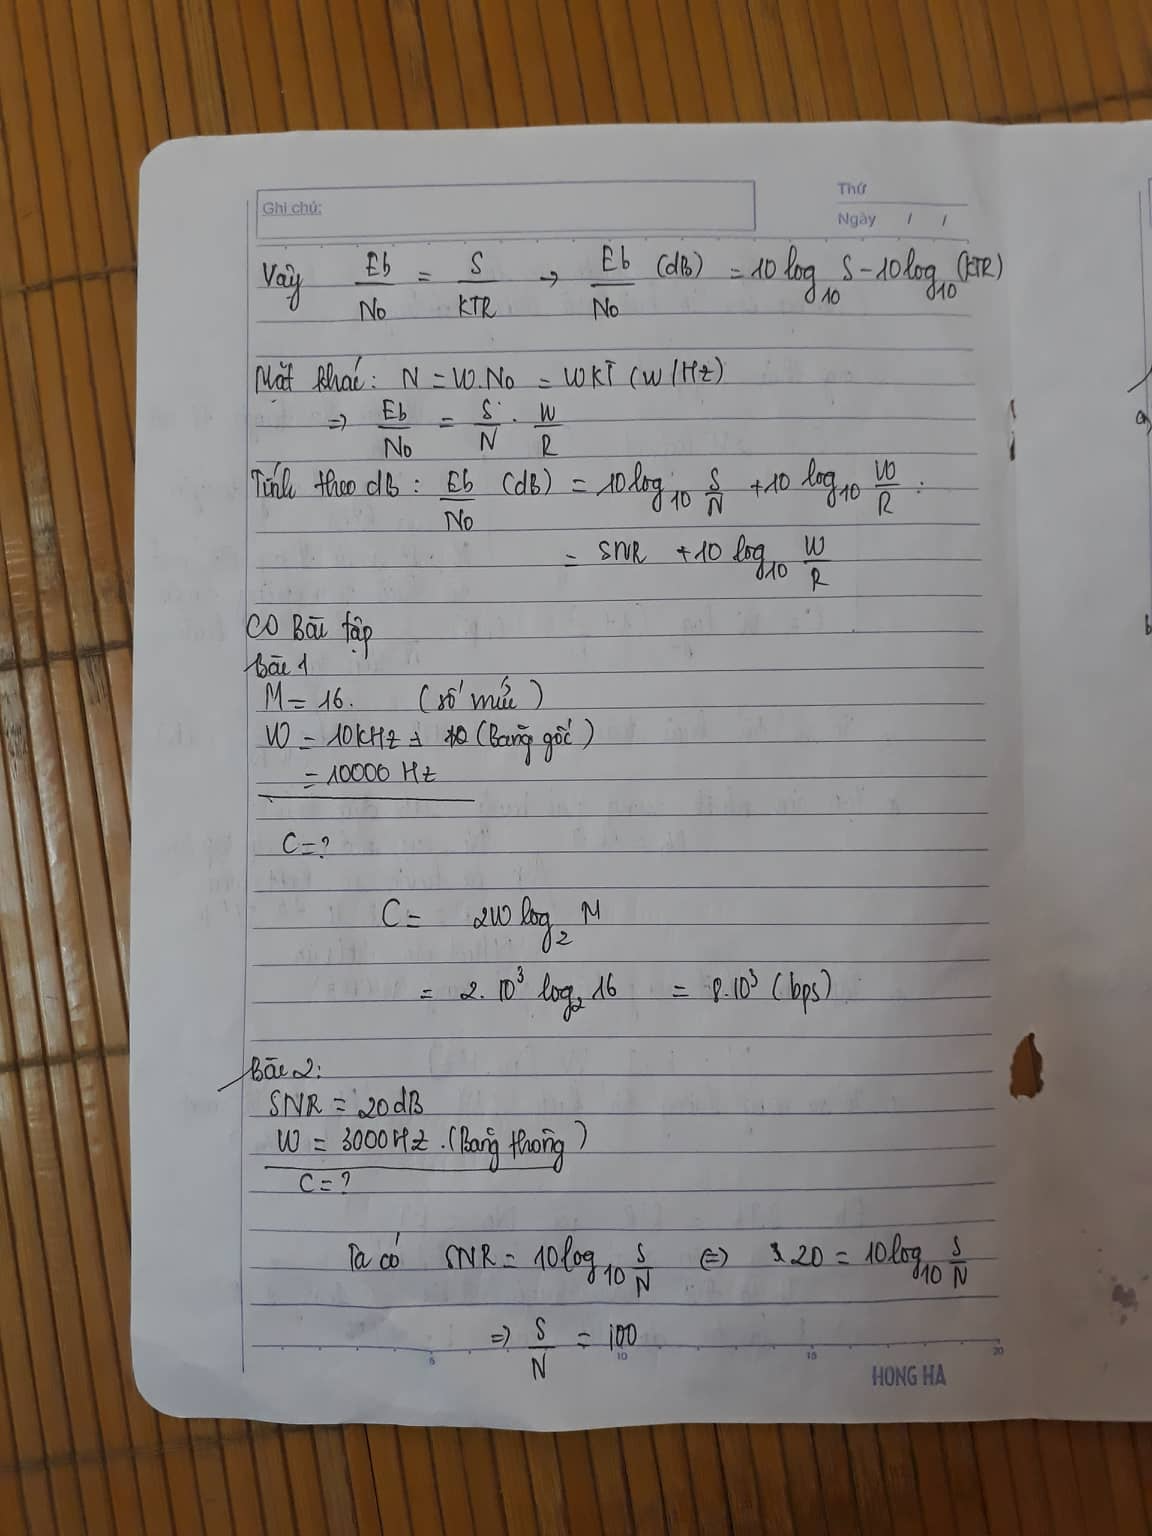 Ghi chú:
Thứ
Ngày / /
Vậy Eb/No = S/KTR → Eb/No (dB) = 10 log₁₀ S - 10 log₁₀ (KTR)
Mặt khác: N = W.No = WKT (W/Hz)
⇒ Eb/No = S/N . W/R
Tính theo dB: Eb/No (dB) = 10 log₁₀ S/N + 10 log₁₀ W/R
= SNR + 10 log₁₀ W/R
Bài tập
Bài 1
M = 16. (số mức)
W = 10KHz = (Băng gốc)
= 10000 Hz
C = ?
C = 2W log₂ M
= 2.10³ log₂ 16 = 8.10³ (bps)
Bài 2:
SNR = 20 dB
W = 3000 Hz. (Băng thông)
C = ?
Ta có SNR = 10 log₁₀ S/N ⇔ 20 = 10 log₁₀ S/N
⇒ S/N = 100
5 10 15 20
HONG HA
a)
b